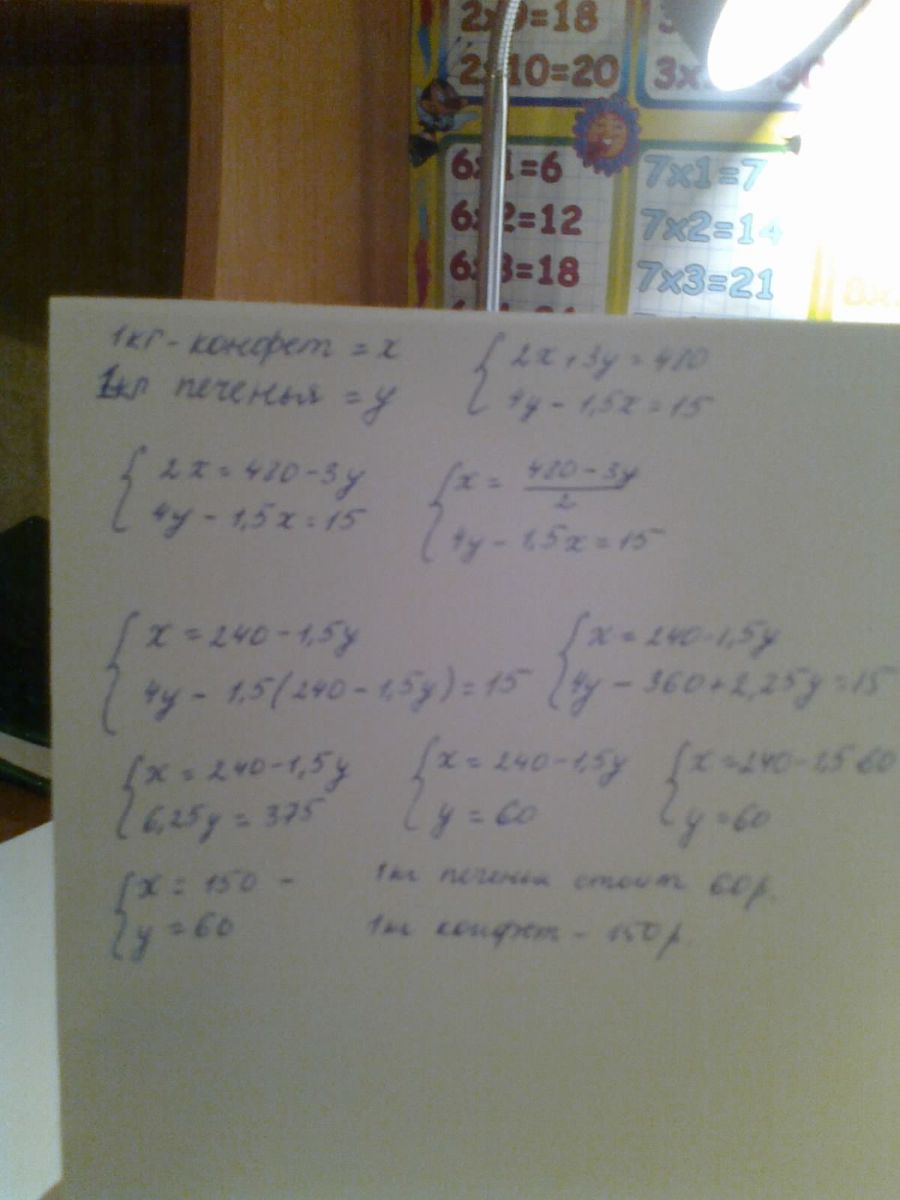 2x9=18
2x10=20
6x1=6
7x1=7
6x2=12
7x2=14
6x3=18
7x3=21
1кг - конфет = x
1кг печенья = y
{ 2x + 3y = 480
4y - 1,5x = 15
{ 2x = 480 - 3y
4y - 1,5x = 15
{ x = 480 - 3y / 2
4y - 1,5x = 15
{ x = 240 - 1,5y
4y - 1,5(240 - 1,5y) = 15
{ x = 240 - 1,5y
4y - 360 + 2,25y = 15
{ x = 240 - 1,5y
6,25y = 375
{ x = 240 - 1,5y
y = 60
{ x = 240 - 1,5·60
y = 60
{ x = 150 -
y = 60
1кг печенья стоит 60р.
1кг конфет - 150р.